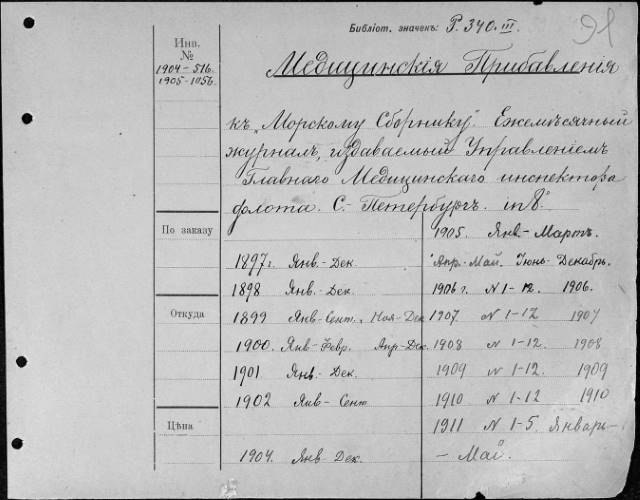 Библіот. значекъ: Р. 340. III.
91
Инв.
№
1904 - 516.
1905 - 1056.
Медицинскія Прибавленія
къ „Морскому Сборнику". Ежемѣсячный
журналъ, издаваемый Управленіемъ
Главнаго Медицинскаго инспектора
флота. С.-Петербургъ. in 8°.
По заказу
Откуда
Цѣна
1897 г. Янв.- Дек.
1898 Янв.- Дек.
1899 Янв-Сент., Ноя-Дек
1900. Янв-Февр. Апр-Дек.
1901 Янв.- Дек.
1902 Янв- Сент
1904. Янв Дек.
1905. Янв- Мартъ.
Апр- Май. Іюнь-Декабрь.
1906 г. N 1-12. 1906.
1907 N 1-12 1907
1908 N 1-12. 1908
1909 N 1-12. 1909
1910 N 1-12 1910
1911 N 1-5. Январь-
- Май.